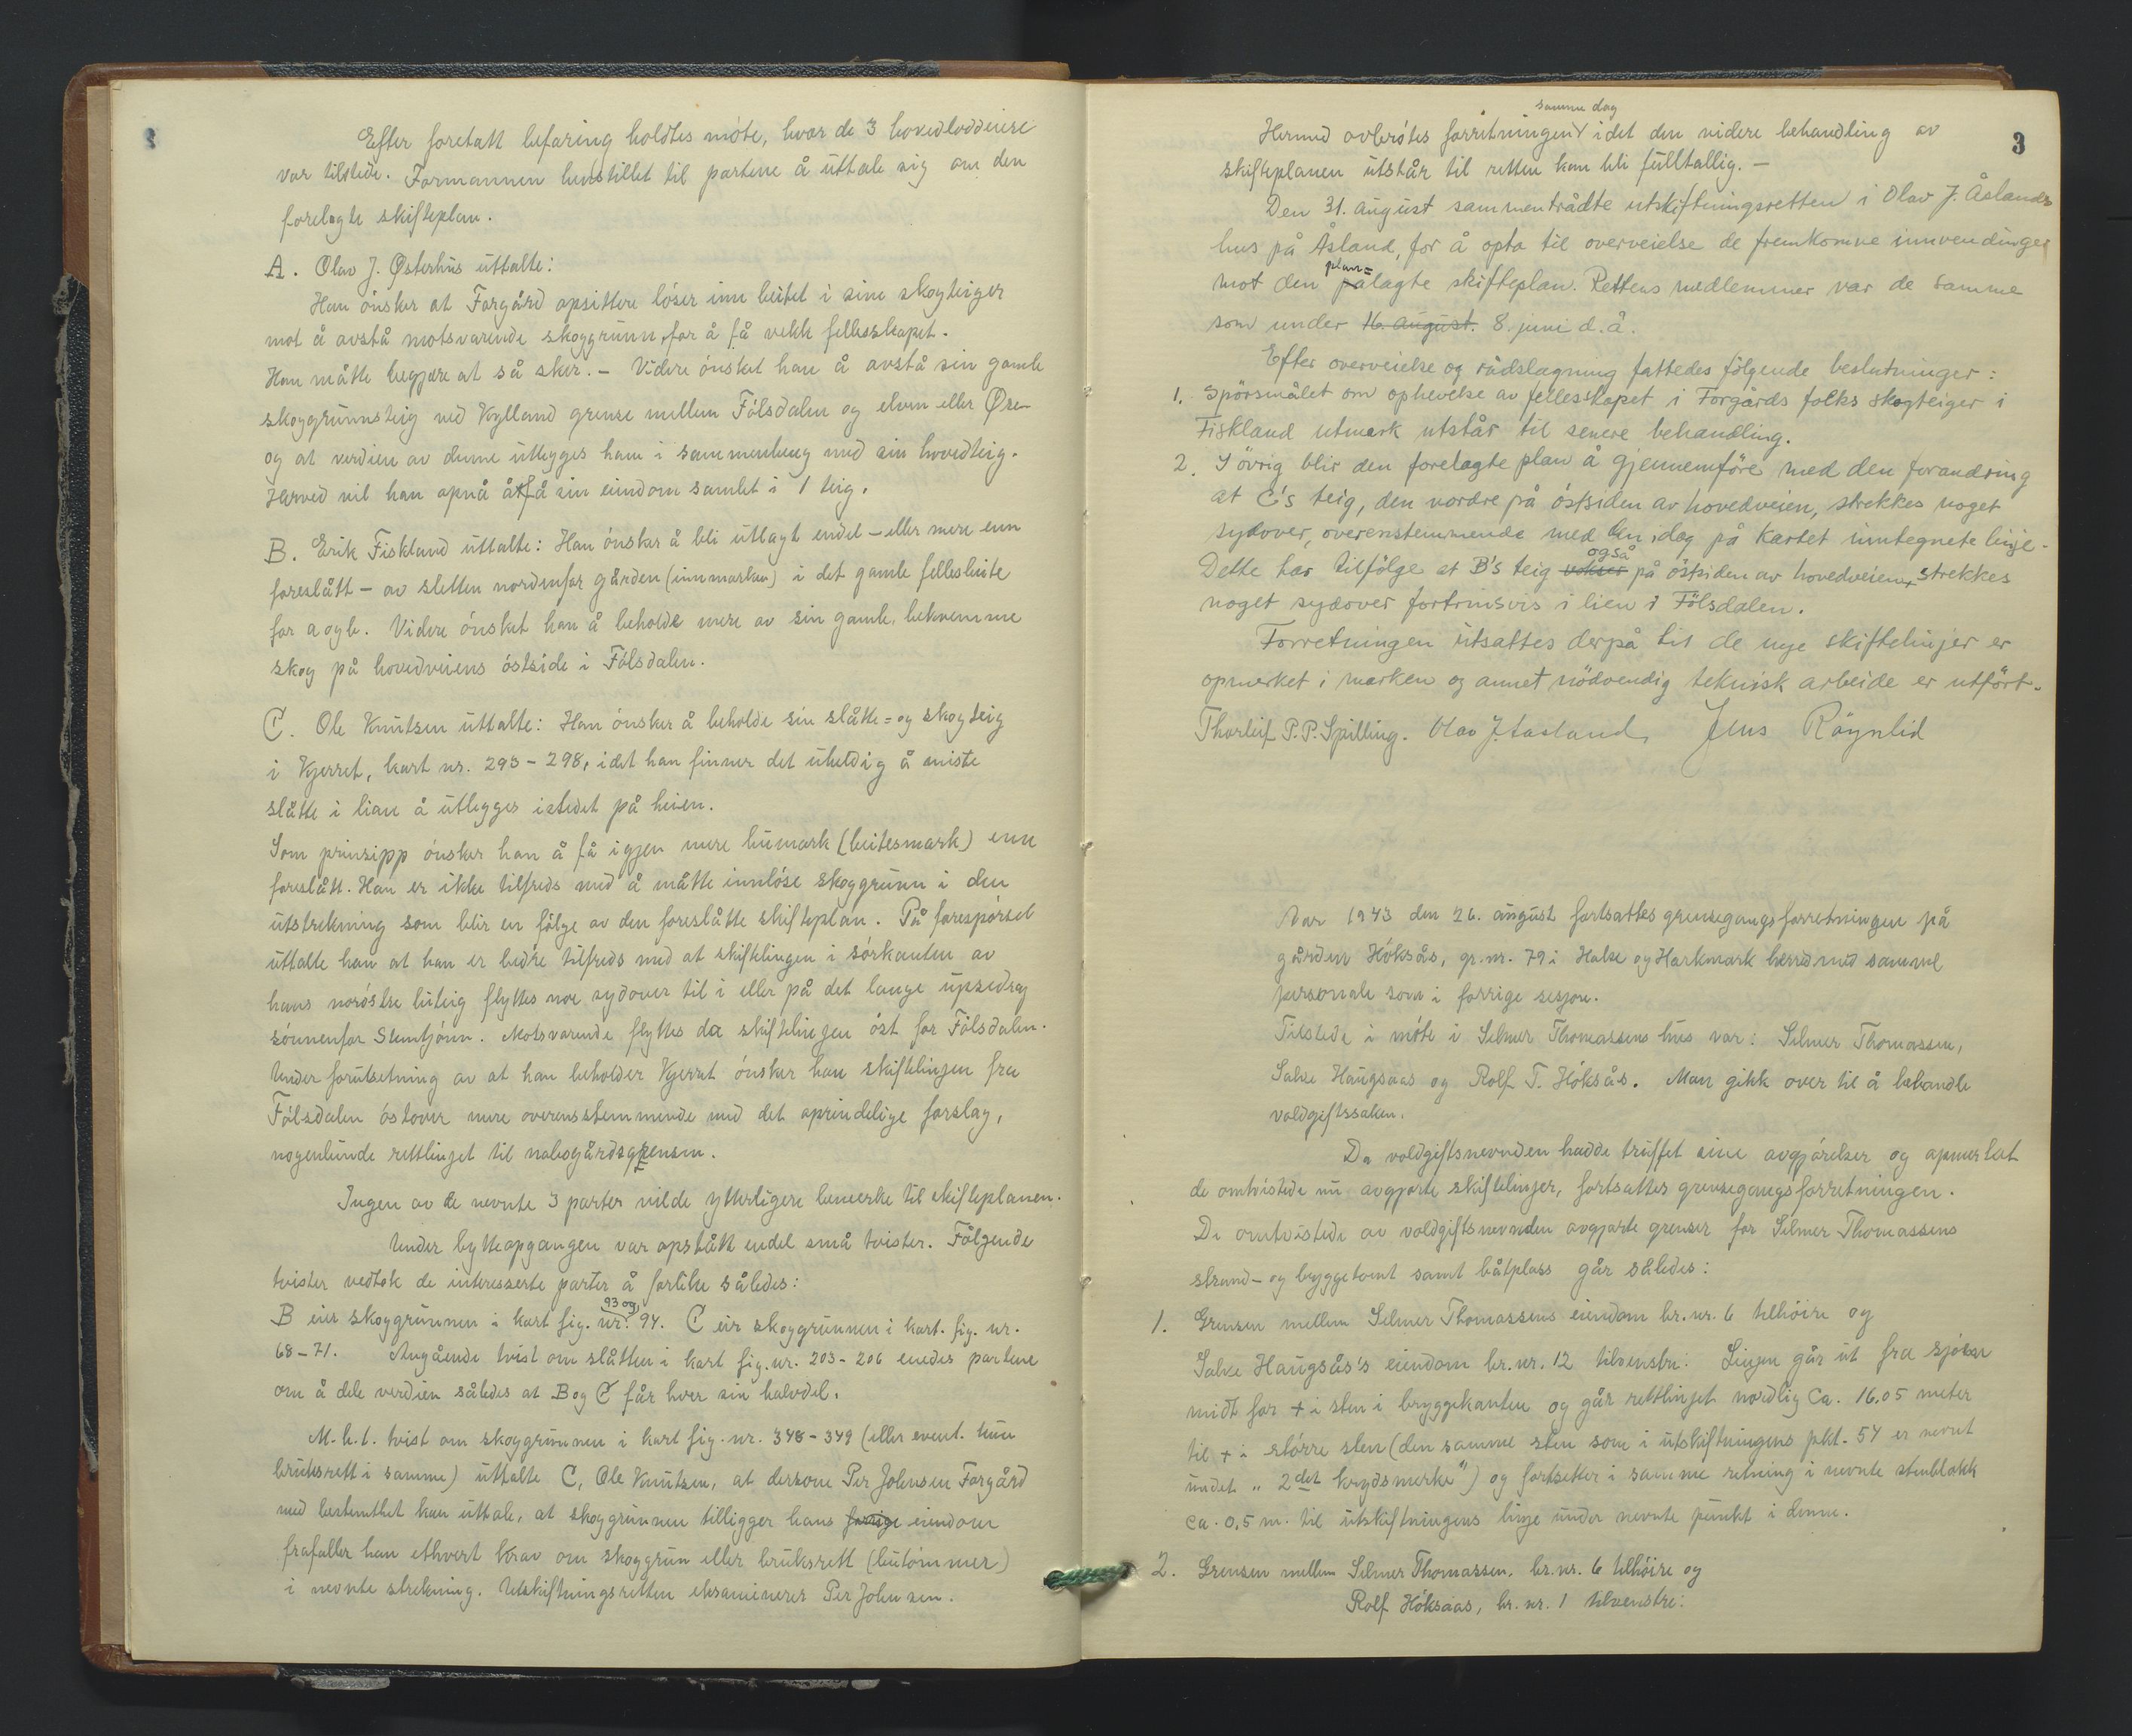 Efter foretatt befaring holdtes møte, hvor de 3 hovedloddeiere
var tilstede. Formannen henstillet til partene å uttale sig om den
forelagte skifteplan.
A. Olav J. Østerhus uttalte:
Han ønsker at Forgård opsittere løser inn beitet i sine skogteiger
mot å avstå motsvarende skoggrunn, for å få vekk fellesskapet.
Han måtte begjære at så sker. - Videre ønsket han å avstå sin gamle
skoggrunnsteig ved Kylland grense mellem Fölsdalen og elven eller Øre-
og at verdien av denne utlegges ham i sammenheng med sin hovedteig.
Herved vil han opnå å få sin eiendom samlet i 1 teig.
B. Erik Fiskland uttalte: Han ønsker å bli utlagt endel - eller mere enn
foreslått - av sletten nordenfor gården (innmarken) i det gamle fellesbeite
for a og b. Videre ønsket han å beholde mere av sin gamle, bekvemme
skog på hovedveiens østside i Fölsdalen.
C. Ole Knutsen uttalte: Han ønsker å beholde sin slåtte= og skogteig
i Kjerret, kart nr. 293 - 298, idet han finner det uheldig å miste
slåtte i lian å utlegges istedet på heien.
Som prinsipp ønsker han å få igjen mere heimark (beitesmark) enn
foreslått. Han er ikke tilfreds med å måtte innløse skoggrunn i den
utstrekning som blir en følge av den foreslåtte skifteplan. På forespørsel
uttalte han at han er bedre tilfreds med at skiftelingen i sørkanten av
hans norøstre beiteig flyttes noe sydover til i eller på det lange upsedrag
sønnenfor Stemtjønn. Motsvarende flyttes da skiftelinjen øst for Fölsdalen.
Under forutsetning av at han beholder Kjerret ønsker han skiftelinjen fra
Fölsdalen østover mere overensstemmende med det oprindelige forslag,
nogenlunde rettlinjet til nabogårdsgrensen.
Ingen av de nevnte 3 parter vilde ytterligere bemerke til skifteplanen.
Under bytteopgangen var opstått endel små tvister. Følgende
tvister vedtok de interesserte parter å forlike således:
93 og
B eier skoggrunnen i kart fig. nr. 94. C eier skoggrunnen i kart. fig. nr.
68 - 71. Angående tvist om slåtten i kart fig. nr. 203 - 206 enedes partene
om å dele verdien således at B og C får hver sin halvdel.
M.h.t. tvist om skoggrunnen i kart fig. nr. 348 - 349 (eller event. kun
bruksrett i samme) uttalte C, Ole Knutsen, at dersom Per Johnsen Forgård
med bestemthet kan uttale, at skoggrunnen tilligger hans forrige eiendom
frafaller han ethvert krav om skoggrun eller bruksrett (beitømmer)
i nevnte strekning. Utskiftningsretten eksaminerer Per Johnsen.
3
samme dag
Hermed avbrøtes forretningen idet den videre behandling av
skifteplanen utstår til retten kan bli fulltallig. -
Den 31. august sammentrådte utskiftningsretten i Olav J. Åslands
hus på Åsland, for å opta til overveielse de fremkomne innvendinger
plan=
mot den pålagte skifteplan. Rettens medlemmer var de samme
som under 16. august. 8. juni d.å.
Efter overveielse og rådslagning fattedes følgende beslutninger:
1. Spørsmålet om ophevelse av fellesskapet i Forgårds folks skogteiger i
Fiskland utmark utstår til senere behandling.
2. I övrig blir den forelagte plan å gjennemföre med den forandring
at C's teig, den nordre på östsiden av hovedveien, strekkes noget
sydover, overenstemmende med den idag på kartet inntegnete linje.
også
Dette har tilfölge at B's teig vokser på östsiden av hovedveien, strekkes
noget sydover fortrinsvis i lien i Fölsdalen.
Forretningen utsattes derpå til de nye skiftelinjer er
opmerket i marken og annet nödvendig teknisk arbeide er utfört.
Thorleif P.P. Spilling. Olav J. Aasland, Jens Röynlid
Aar 1943 den 26. august fortsattes grensegangsforretningen på
gården Höksås, gr.nr. 79 i Halse og Harkmark herred med samme
personale som i forrige sesjon.
Tilstede i møte i Selmer Thomassens hus var: Selmer Thomassen,
Salve Haugsaas og Rolf T. Höksås. Man gikk over til å behandle
voldgiftssaken.
Da voldgiftsnevnden hadde truffet sine avgjørelser og opmerket
de omtvistede nu avgjorte skiftelinjer, fortsattes grensegangsforretningen.
De omtvistede av voldgiftsnevnden avgjorte grenser for Selmer Thomassens
strand- og bryggetomt samt båtplass går således:
1. Grensen mellem Selmer Thomassens eiendom br.nr. 6 tilhøire og
Salve Haugsås's eiendom br.nr. 12 tilvenstre: Linjen går ut fra sjøen
midt for + i sten i bryggekanten og går rettlinjet nordlig ca. 16,05 meter
til + i større sten (den samme sten som i utskiftningens pkt. 54 er nevnt
under "2det krydsmerke") og fortsetter i samme retning i nevnte stenblokk
ca. 0,5 m. til utskiftningens linje under nevnte punkt i denne.
2. Grensen mellem Selmer Thomassen, br.nr. 6 tilhøire og
Rolf Höksaas, br.nr. 1 tilvenstre: